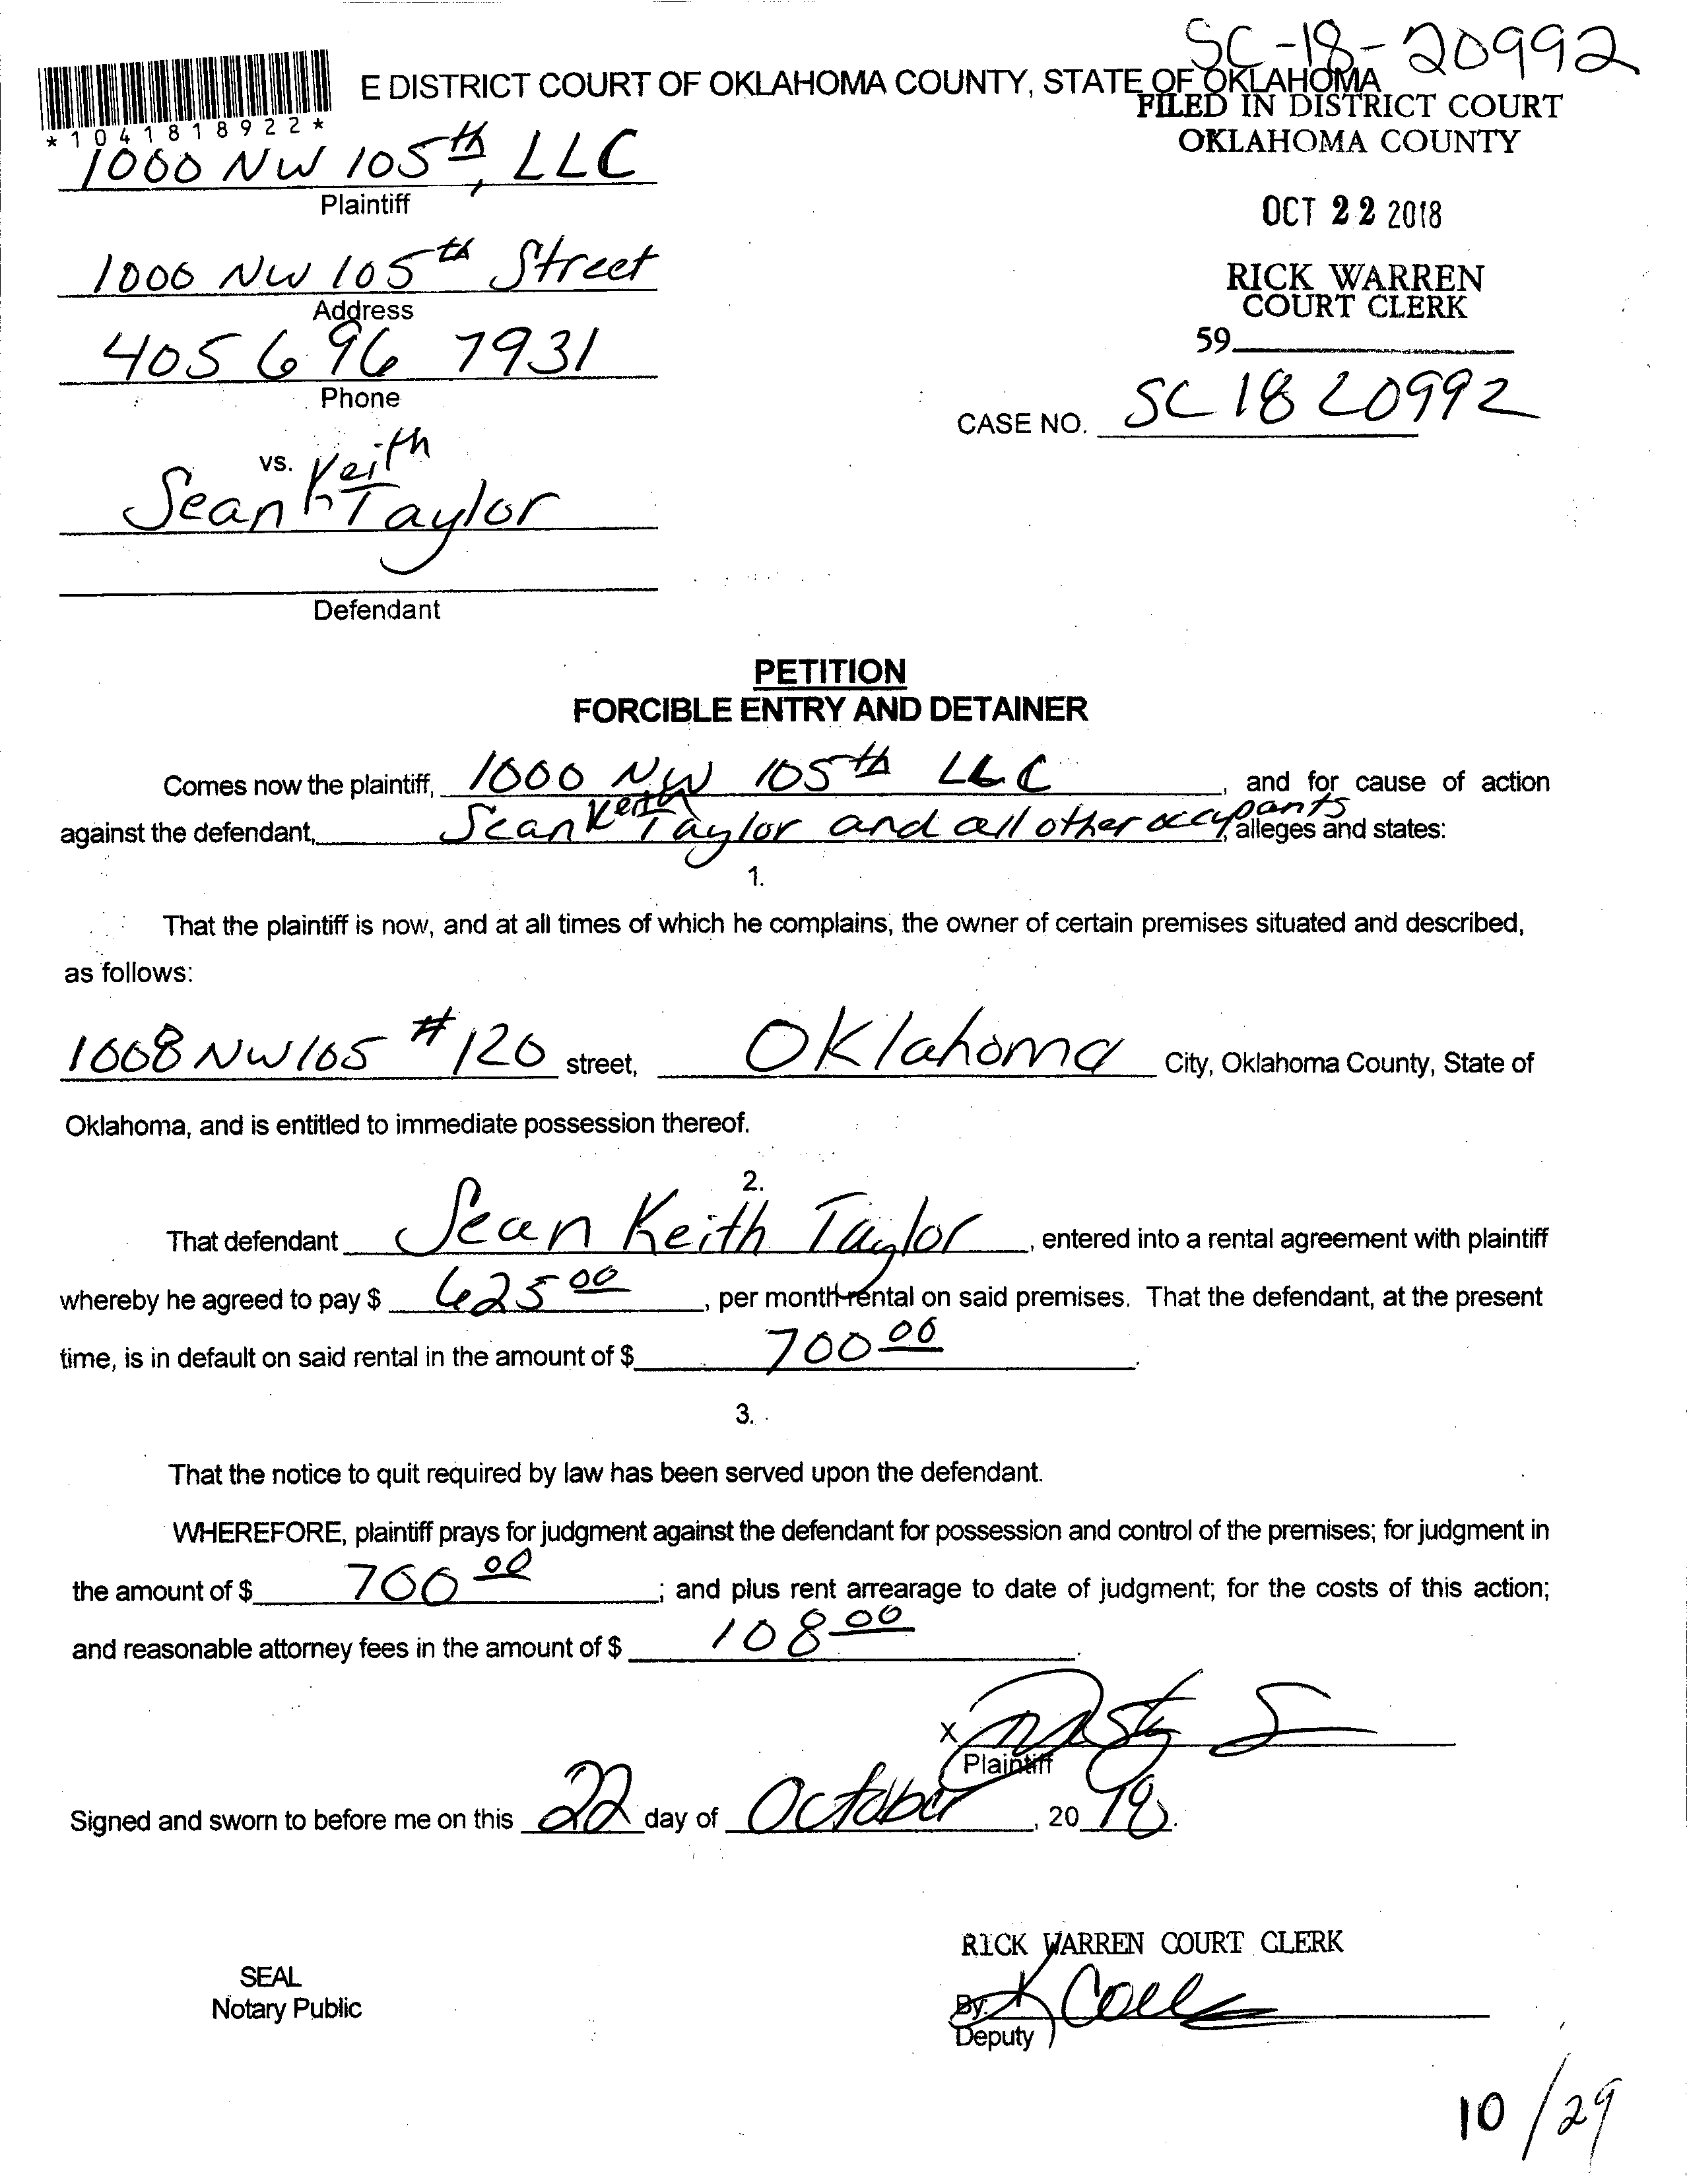 SC-18-20992
E DISTRICT COURT OF OKLAHOMA COUNTY, STATE OF OKLAHOMA
*1041818922*
FILED IN DISTRICT COURT
OKLAHOMA COUNTY
1000 NW 105th, LLC
Plaintiff
OCT 22 2018
1000 NW 105th Street
Address
RICK WARREN
COURT CLERK
405 696 7931
Phone
59
CASE NO. SC 18 20992
vs.
Sean Keith Taylor
Defendant
PETITION
FORCIBLE ENTRY AND DETAINER
Comes now the plaintiff, 1000 NW 105th LLC, and for cause of action
against the defendant, Sean Keith Taylor and all other occupants, alleges and states:
1.
That the plaintiff is now, and at all times of which he complains, the owner of certain premises situated and described,
as follows:
1008 NW 105 #120 street, Oklahoma City, Oklahoma County, State of
Oklahoma, and is entitled to immediate possession thereof.
2.
That defendant Sean Keith Taylor, entered into a rental agreement with plaintiff
whereby he agreed to pay $ 625 00, per month rental on said premises. That the defendant, at the present
time, is in default on said rental in the amount of $ 700 00.
3.
That the notice to quit required by law has been served upon the defendant.
WHEREFORE, plaintiff prays for judgment against the defendant for possession and control of the premises; for judgment in
the amount of $ 700 00; and plus rent arrearage to date of judgment; for the costs of this action;
and reasonable attorney fees in the amount of $ 108 00.
X
Plaintiff
Signed and sworn to before me on this 22 day of October, 20 18.
RICK WARREN COURT CLERK
SEAL
Notary Public
By:
Deputy
10/29